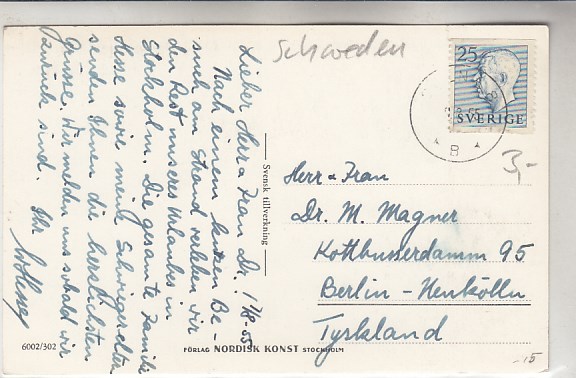 Schweden
25
SVERIGE
B
3,-
1/8.55
Lieber Herr & Frau Dr.!
Nach einem kurzen Be-
such am Strand verleben wir
den Rest unseres Urlaubes in
Stockholm. Die gesamte Familie
Hesse sowie meine Schwiegereltern
senden Ihnen die herzlichsten
Grüsse. Wir melden uns sobald wir
zurück sind. Ihr
Svensk tillverkning
Herr & Frau
Dr. M. Magner
Kottbusserdamm 95
Berlin - Neukölln
Tyskland
6002/302
FÖRLAG NORDISK KONST STOCKHOLM
-.15